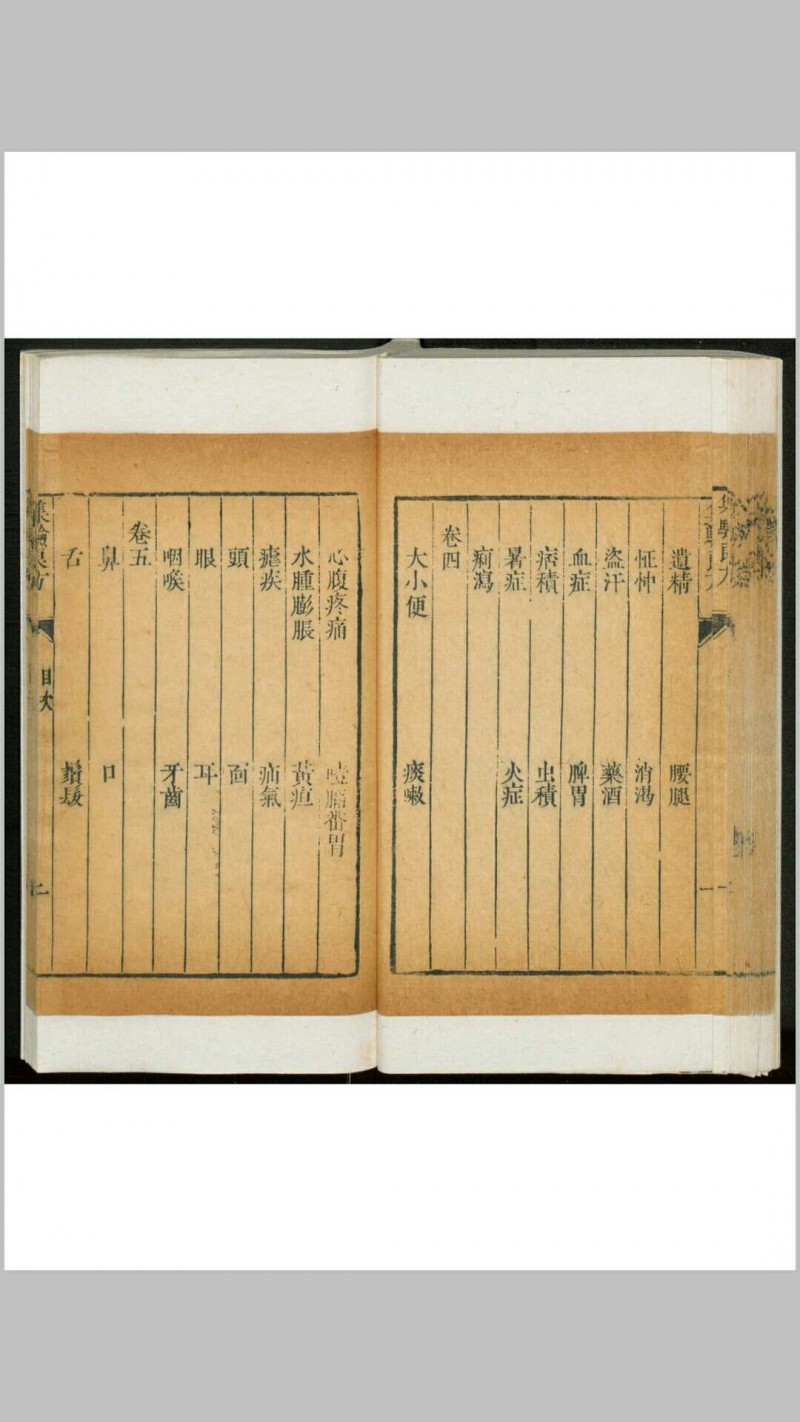 遺精　腰腿
怔忡　消渴
盜汗　藥酒
血症　脾胃
痞積　虫積
暑症　火症
痢瀉
卷四
大小便　痰嗽
心腹疼痛　噎膈番胃
水腫膨脹　黃疸
瘧疾　疝氣
頭　面
眼　耳
咽喉　牙齒
卷五
鼻　口
舌　鬚髮
集驗良方　目次　二